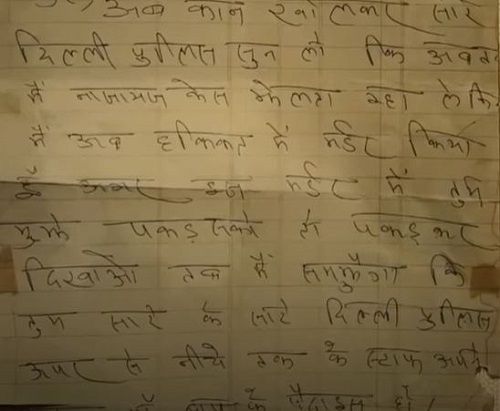 अब कान खोलकर सारे
दिल्ली पुलिस सुन लो कि अबतक
मैं नाजायज केस झेलता रहा लेकि
मैं अब हकिकत में मर्डर किया
हूँ अगर इस मर्डर में तुम
मुझे पकड़ सको तो पकड़कर
दिखाओ तब मैं समझुँगा कि
तुम सारे के सारे दिल्ली पुलिस
ऊपर से नीचे तक के स्टाफ अपने
बाप के पैदाइस हो।